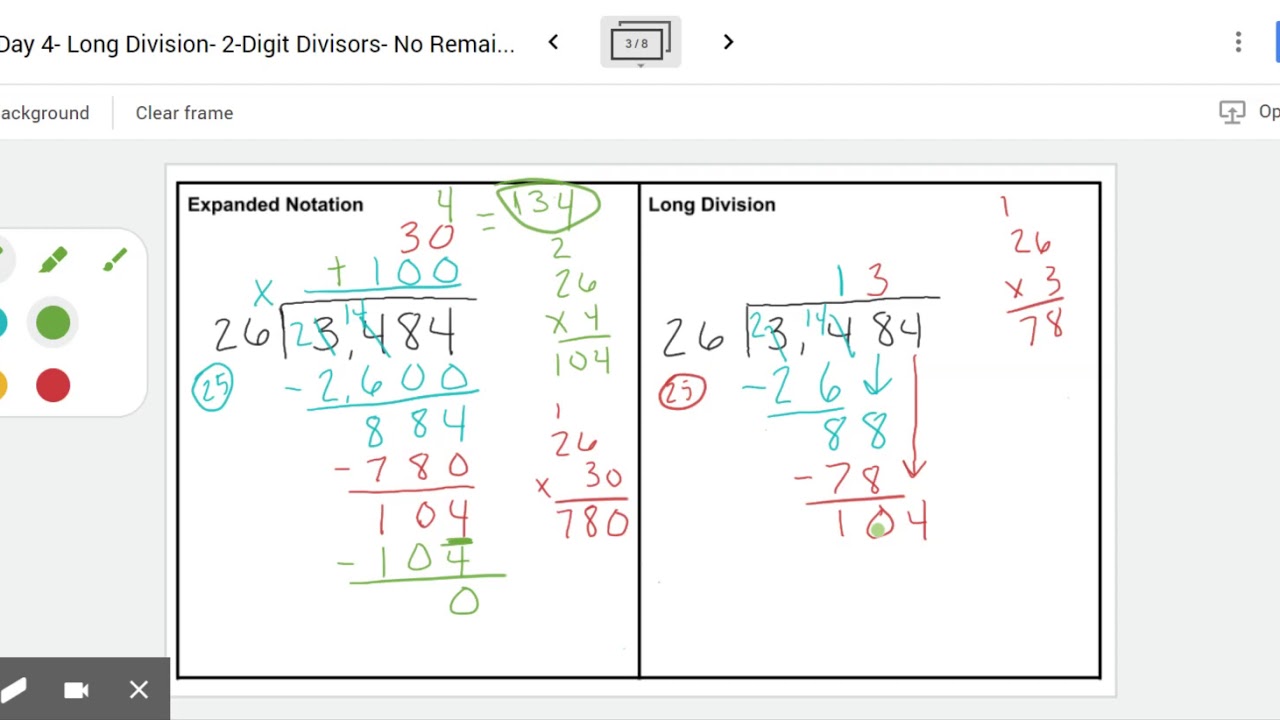 Day 4- Long Division- 2-Digit Divisors- No Remai...
3/8
ackground
Clear frame
Op
Expanded Notation
4 = 134
30
+ 100
x
26 23,14484
25
- 2,600
884
- 780
104
- 104
0
2
26
x 4
104
1
26
x 30
780
Long Division
13
26 23,14484
25
- 26
88
- 78
104
1
26
x 3
78